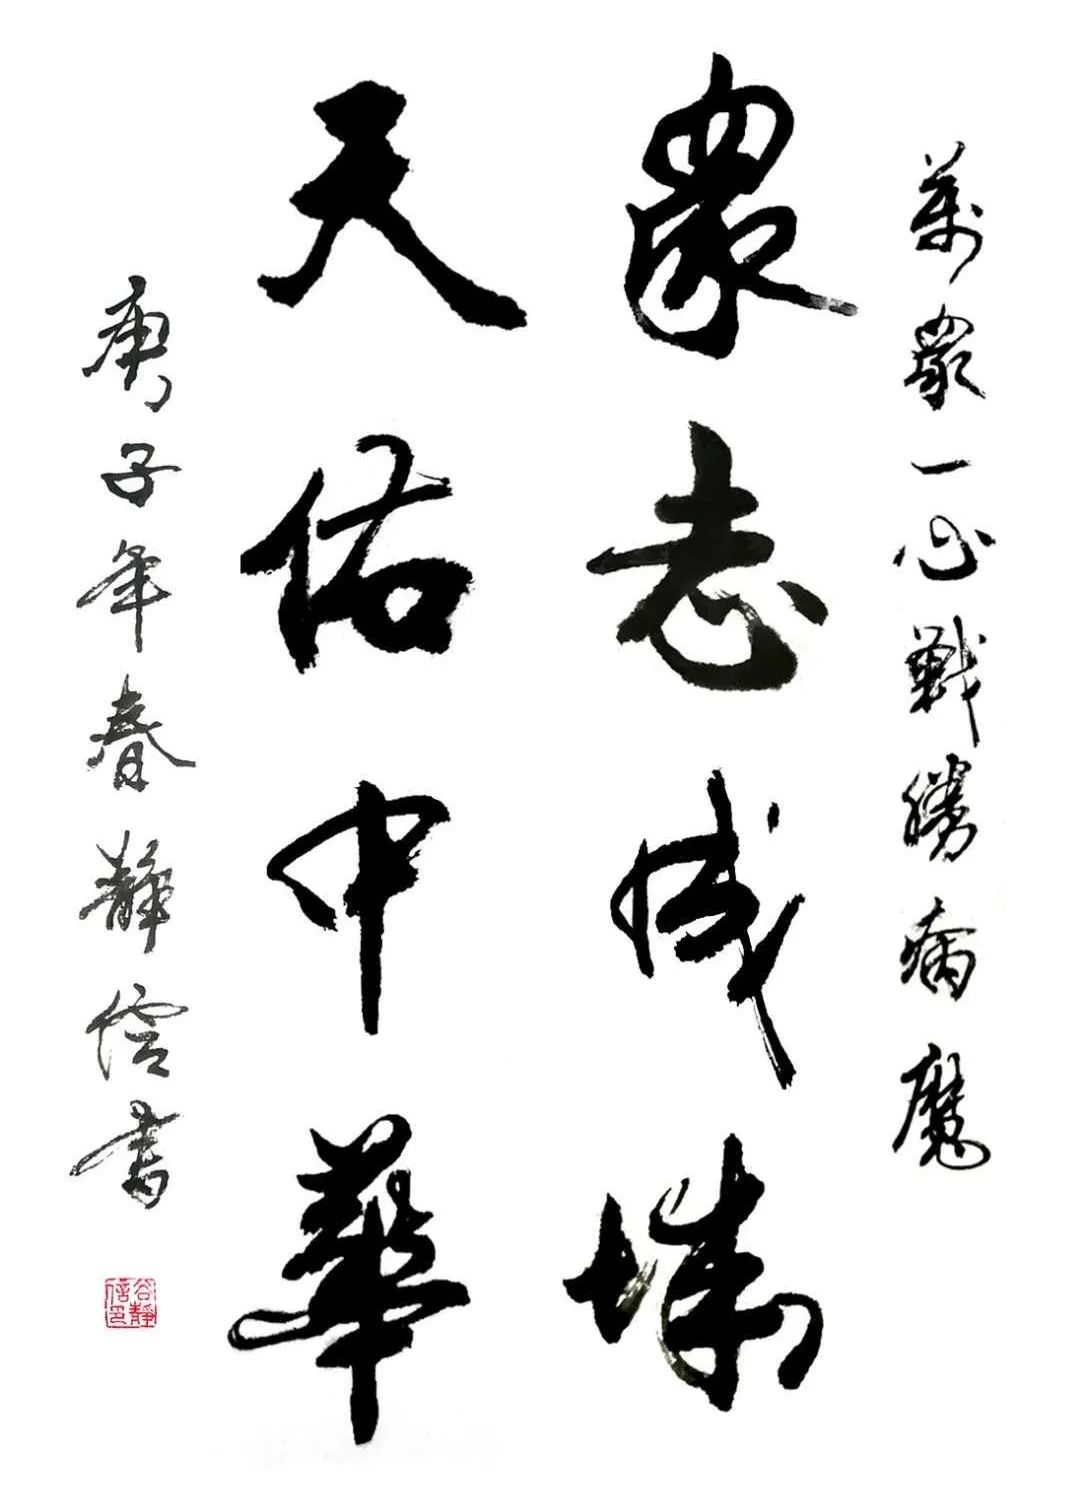 萬衆一心戰勝病魔
衆志成城
天佑中華
庚子年春靜信書
谷靜信印